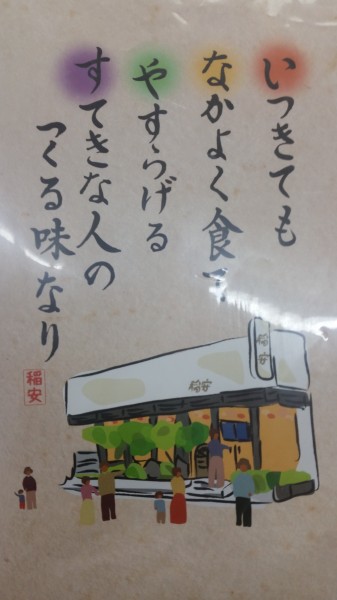 いつきても
なかよく食べ
やすらげる
すてきな人の
つくる味なり
稲安
稲安
稲安